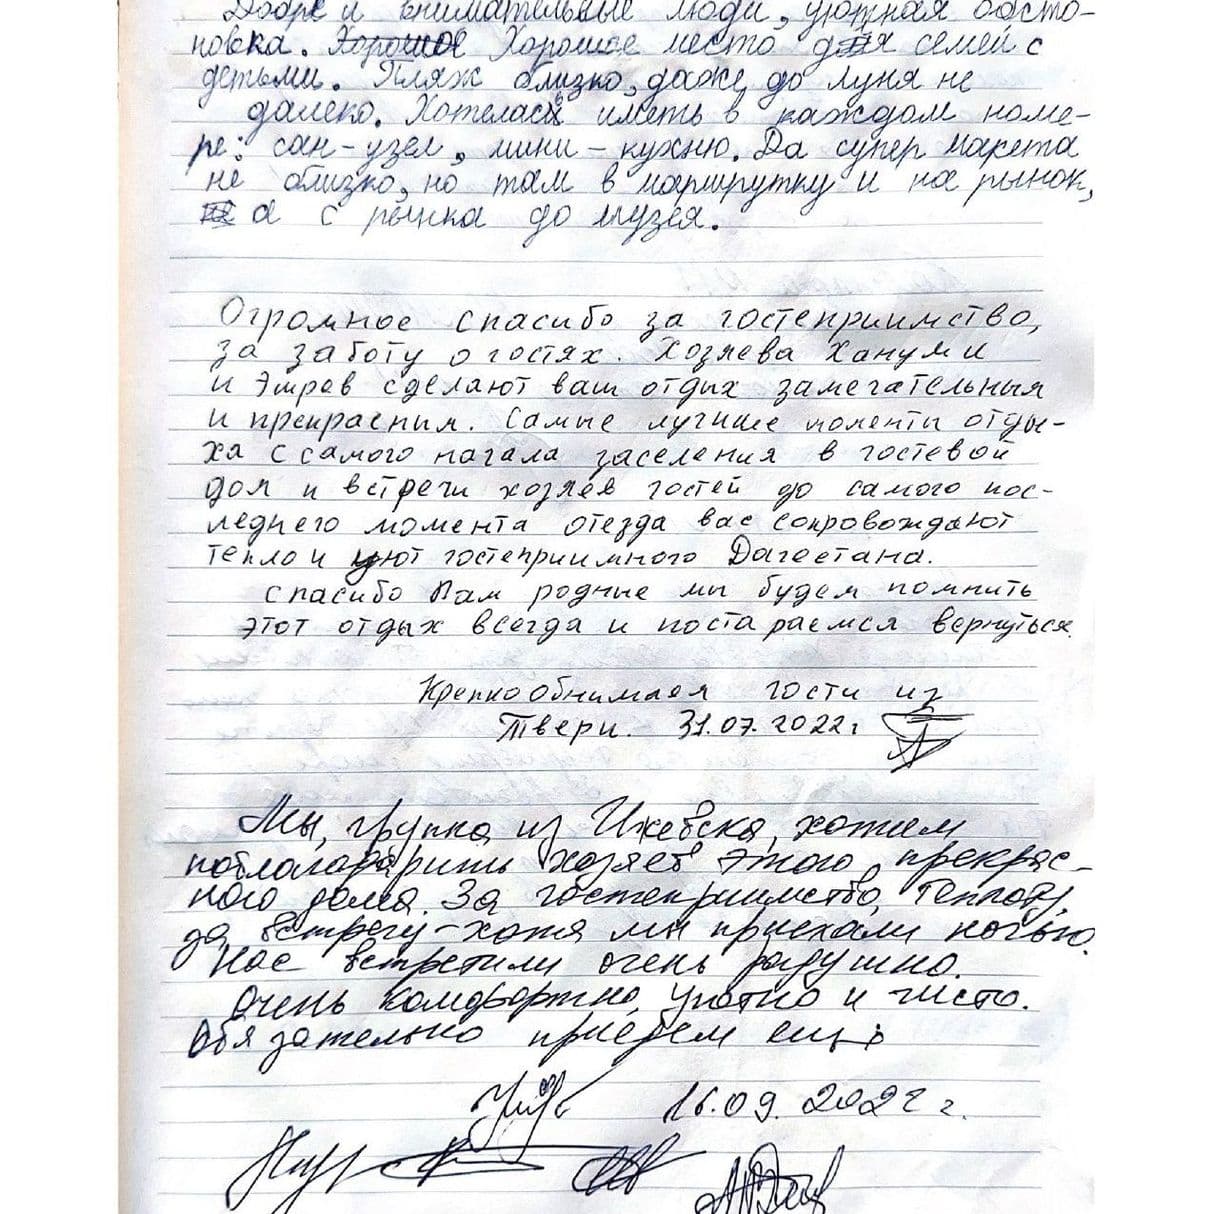 Добре и внимательные люди, уютная обста-
новка. Хорошое Хорошое место для семей с
детьми. Пляж близко, даже до луня не
далеко. Хотелась иметь в каждом номе-
ре: сан-узел, мини-кухню. Да супер макета
не близко, но там в маршрутку и на рынок,
а с рынка до музея.
Огромное спасибо за гостеприимство,
за заботу о гостях. Хозяева Ханум и
и Эшреф сделают ваш отдых замечательныя
и прекрасным. Самые лучшие моменты отды-
ха с самого начала заселения в гостевой
дом и встречи хозяев гостей до самого пос-
леднего момента отезда вас сопровождают
тепло и уют гостеприимного Дагестана.
спасибо Вам родные мы будем помнить
этот отдых всегда и постараемся вернуться.
Крепко обнимаем гости из
Твери. 31.07.2022г
Мы, группа из Ижевска, хотим
поблагодарить хозяев этого прекрас-
ного дома. За гостеприимство, теплоту,
за встречу - хотя мы приехали ночью.
Нас встретили очень радушно.
Очень комфортно, уютно и чисто.
Обязательно приедем ещё
16.09.2022 г.